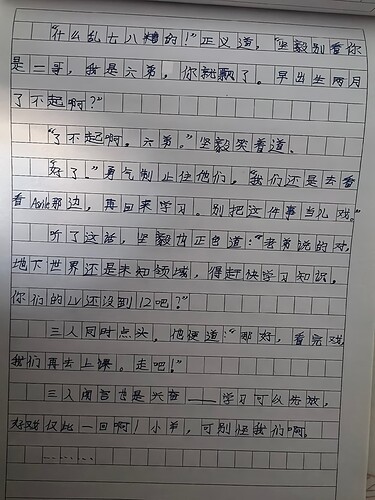 “什么乱七八糟的！”正义道，“坚毅别看你
是二哥，我是六弟，你就飘了。早出生两月
了不起啊？”
“了不起啊。六弟。”坚毅笑着道。
“好了。”勇气制止住他们。“我们还是去看
看Avik那边，再回来学习。别把这件事当儿戏。”
听了这话，坚毅也正色道：“老弟说的对，
地下世界还是未知领域，得赶快学习知识。
你们的LV还没到12吧？”
三人同时点头。他便道：“那好，看完戏
我们再去上课。走吧！”
三人闻言也是兴奋——学习可以先放，
好戏仅此一回啊！小羊，可别怪我们啊。
………